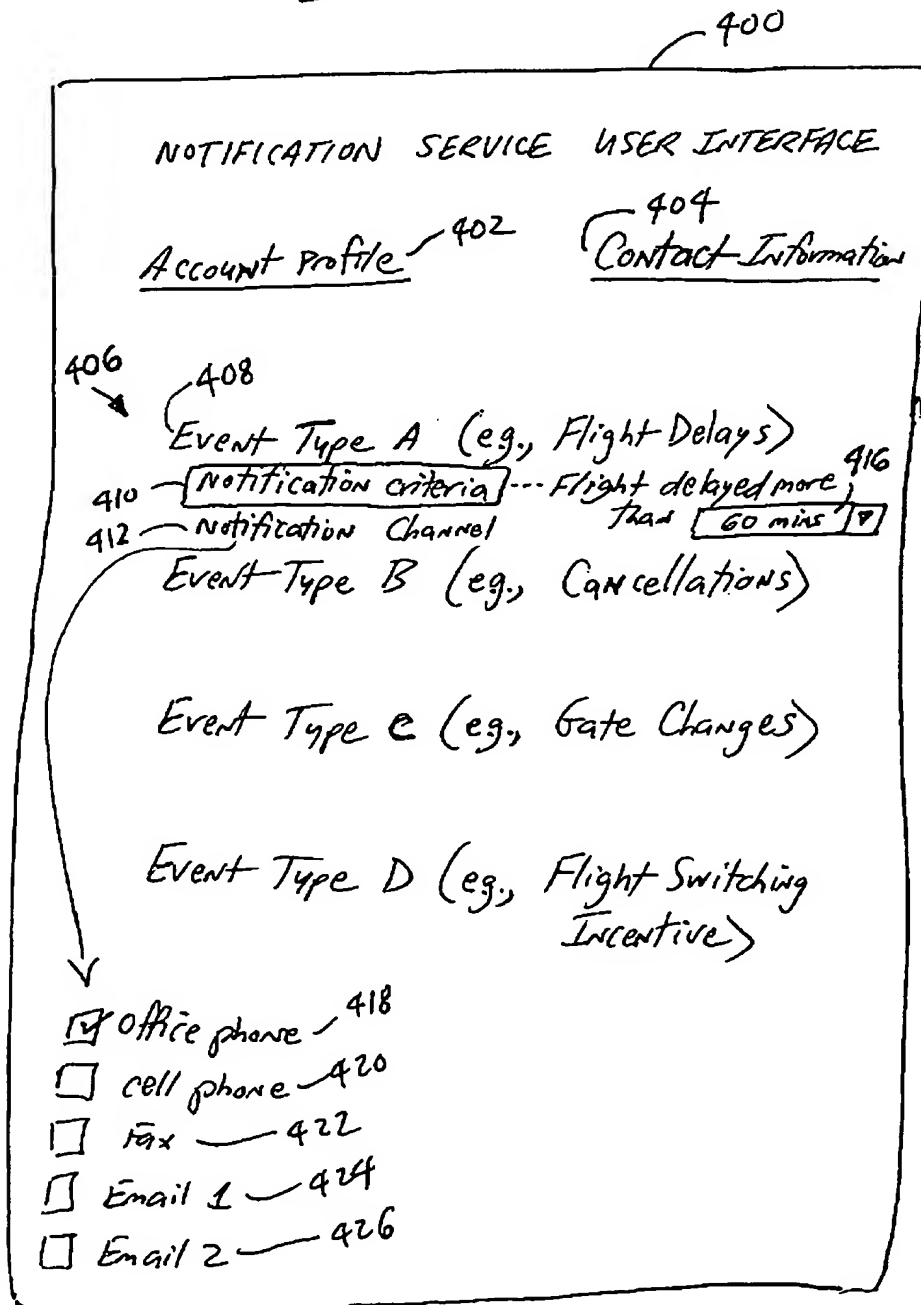 400
NOTIFICATION SERVICE USER INTERFACE
Account Profile 402
404
Contact Information
406
408
Event Type A (eg., Flight Delays)
410 Notification criteria --- Flight delayed more 416
than 60 mins
412 Notification Channel
Event Type B (eg., Cancellations)
Event Type C (eg., Gate Changes)
Event Type D (eg., Flight Switching
Incentive)
office phone 418
cell phone 420
Fax 422
Email 1 424
Email 2 426